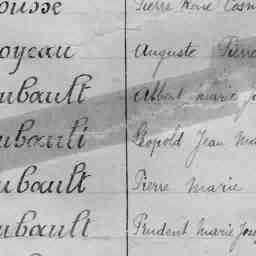 ousse Pierre René Cosm
oyeau Auguste Pierre
ubault Albert Marie J
ubault Léopold Jean Ma
ubault Pierre Marie
ubault Prudent Marie Jose